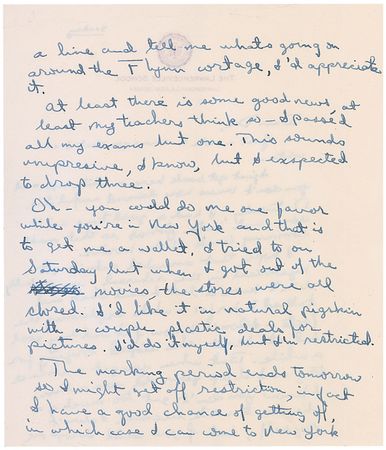 a line and tell me whats going on
around the Flynn cortage, I'd appreciate
it.
At least there is some good news, at
least my teachers think so – I passed
all my exams but one. This sounds
unpresive, I know, but I exspected
to drop three.
Oh – you could do me one favor
while you're in New York and that is
to get me a wallet, I tried to on
Saturday but when I got out of the
movies the stores were all
closed. I'd like it in natural pigskin
with a couple plastic deals for
pictures. I'd do it myself, but I'm restricted.
The marking period ends tomorrow
so I might get off restriction, in fact
I have a good chance of getting off,
in which case I can come to New York